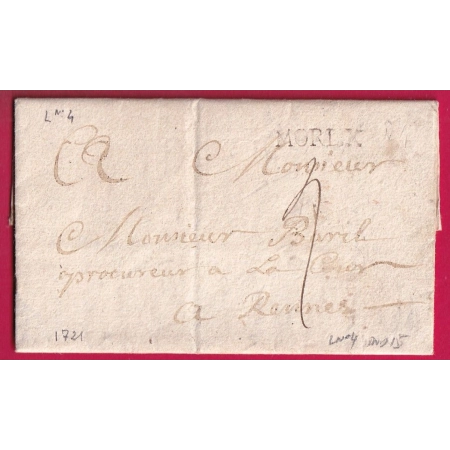 LN°4
MORLX
A Monsieur
Monsieur
procureur a La Cour
a Rennes
1721
LN°4 15